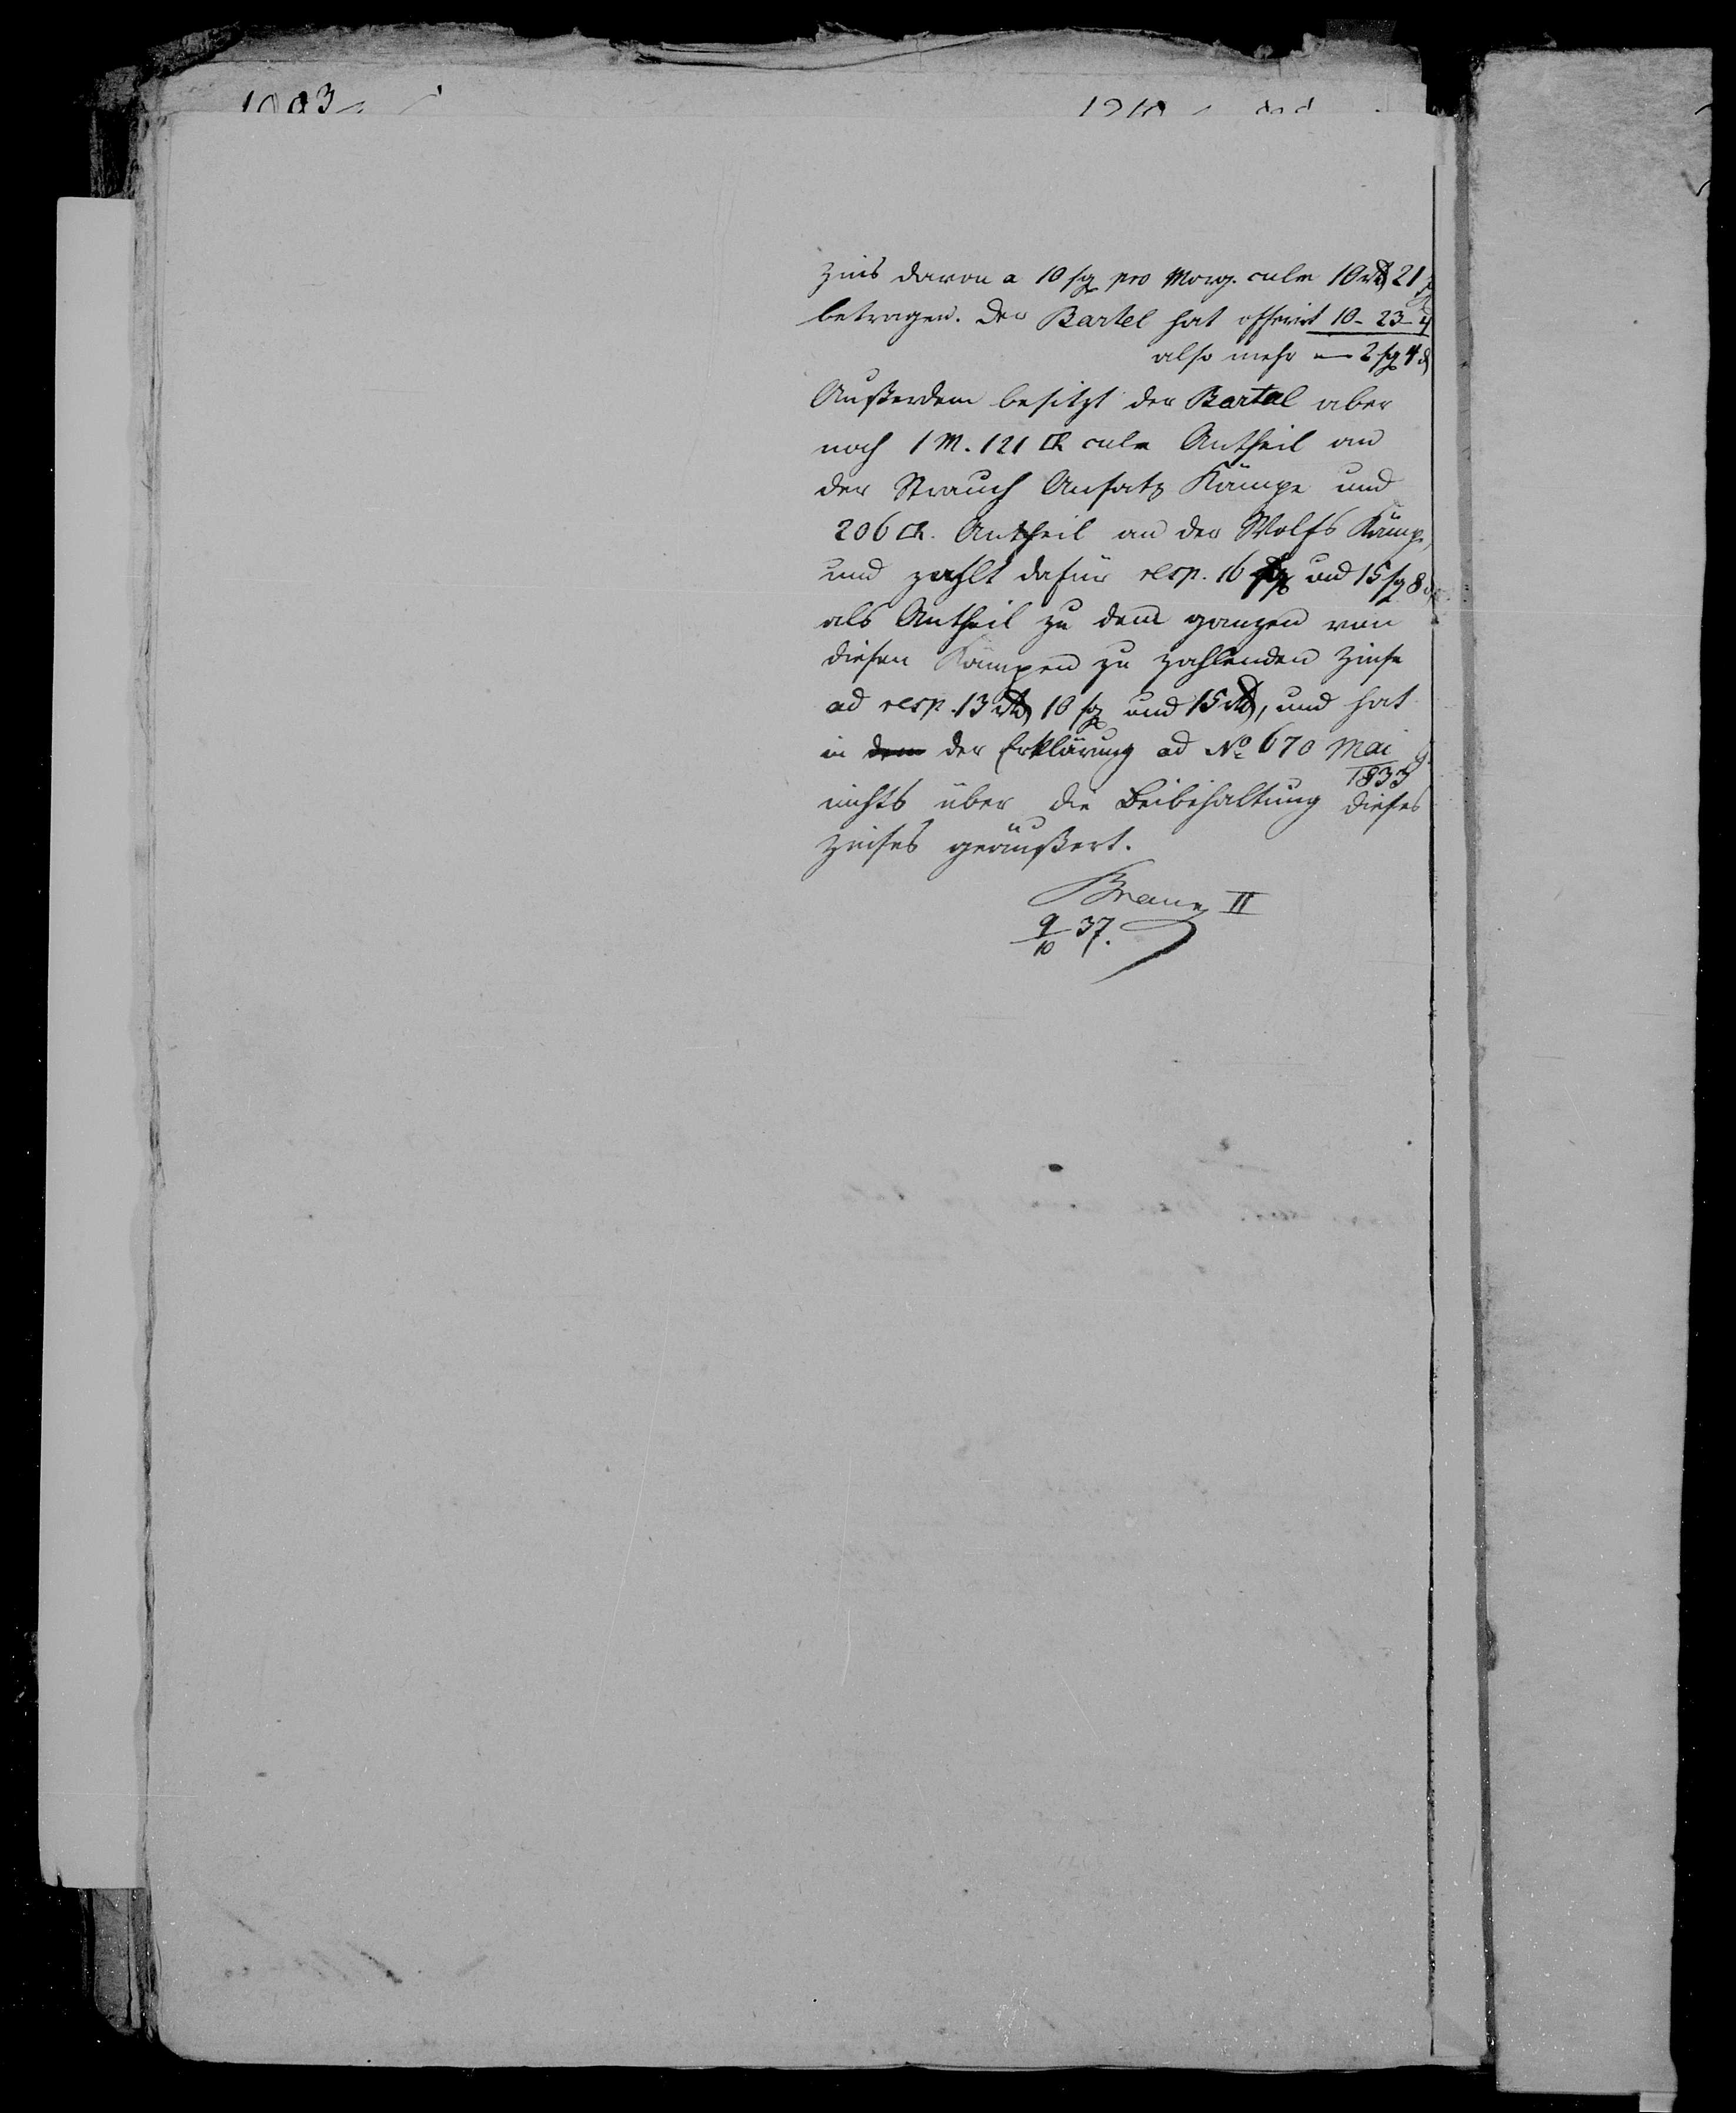 Zins davon a 10 sg pro Morg. culm 10 rtl 21 sg
betragen. Der Bartel hat offerirt 10 - 23 - 4
also mehr — 2 sg 4 d
Außerdem besitzt der Bartel aber
noch 1 M. 121 □R culm Antheil an
der Strauch Ansatz Kämpe und
206 □R. Antheil an der Wolfs Kämpe,
und zahlt dafür resp. 16 sg und 15 sg 8 d
als Antheil zu dem ganzen von
diesen Kämpen zu zahlenden Zinse
ad resp. 13 rtl 10 sg und 15 rtl, und hat
in der Erklärung ad No 670 Mai
1833
nichts über die Beibehaltung dieses
Zinses geäußert.
II
9/10 37.